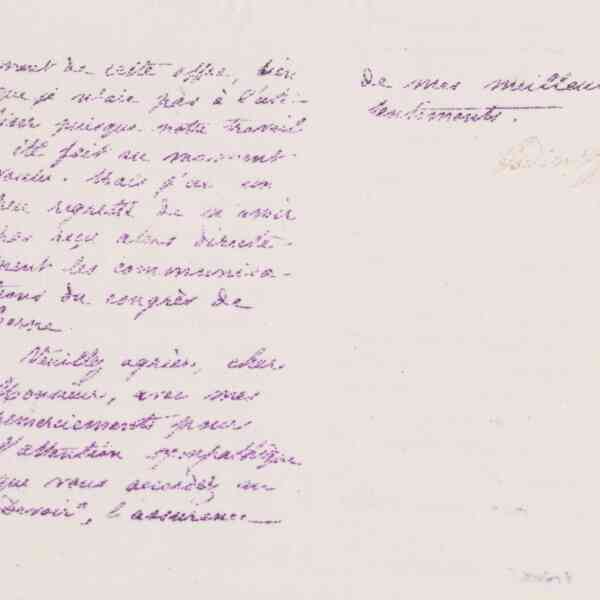 de cette offre, bien
que je n'aie pas à l'uti-
liser puisque notre travail
été fait au moment
voulu. Mais j'ai un
peu regretté de n'avoir
pas reçu alors directe-
ment les communica-
tions du congrès de
Berne.
Veuillez agréer, cher
Monsieur, avec mes
remerciements pour
l'attention sympathique
que vous accordez au
"Devoir", l'assurance
de mes meilleurs
sentiments.